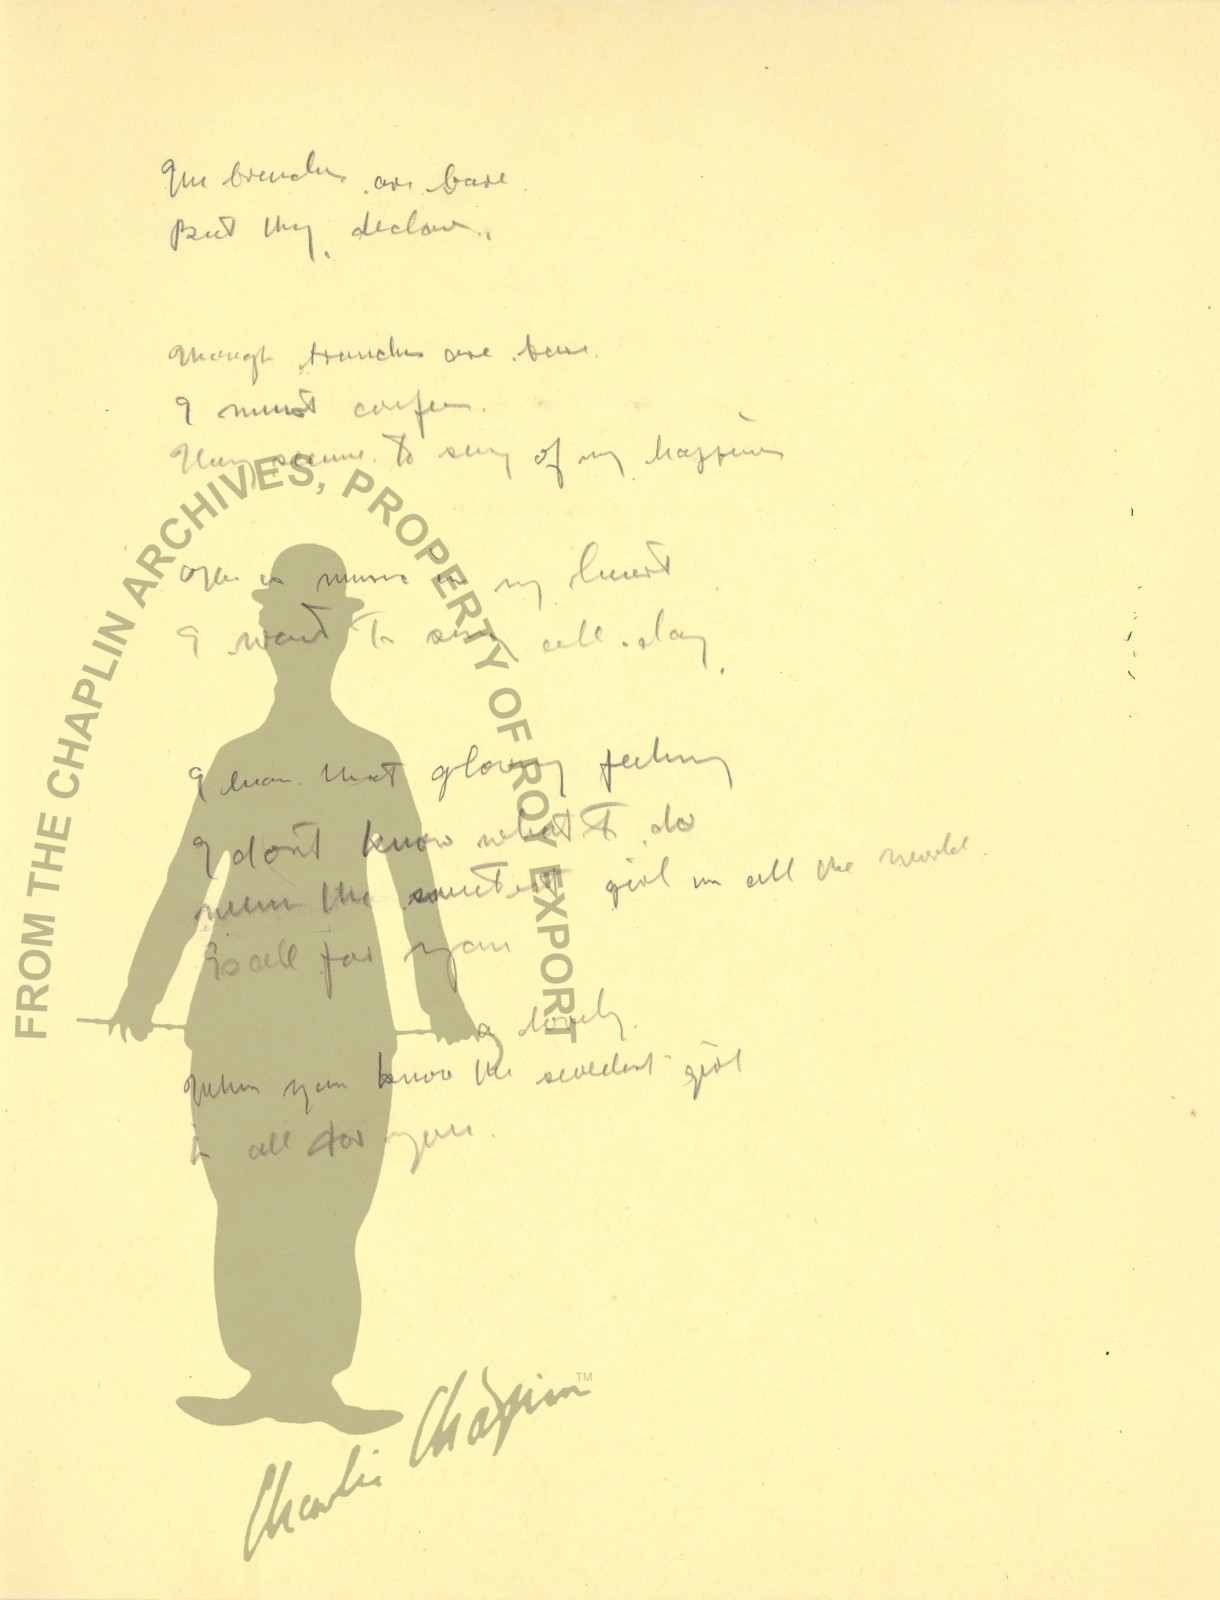 The branches are bare
But they declare,
Though branches are bare
I must confess
They seem to sing of my happiness
is music in my heart
I want to sing all day
I have that glowing feeling
I don't know what to do
When the sweetest girl in all the world
Is all for you
a lovely
When you know the sweetest girl
is all for you.
FROM THE CHAPLIN ARCHIVES, PROPERTY OF ROY EXPORT
Charlie Chaplin™